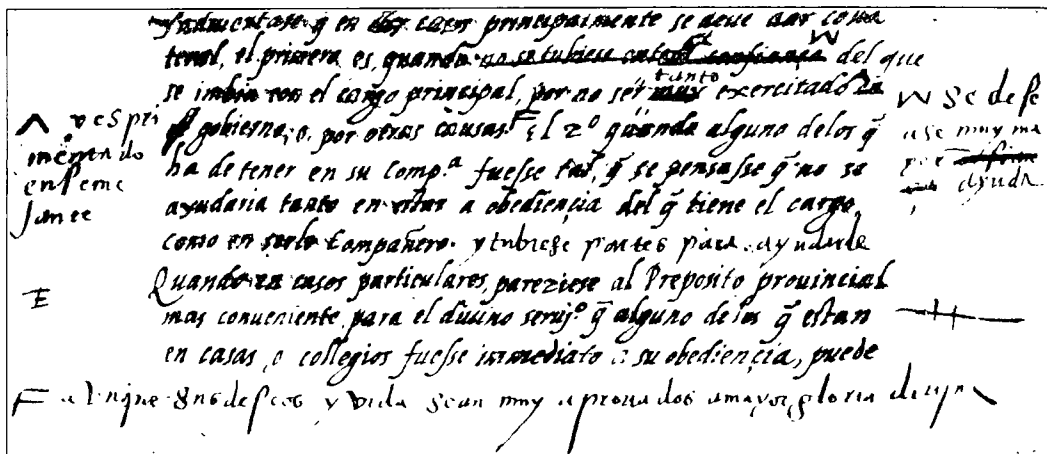 en dos casos principalmente se deve dar cola
teral, el primero es, quando no se tubiese del que
se imbia con el cargo principal, por no ser tanto muy exercitado
gobierno, o, por otras causas. F El 2º quando alguno delos q̃
ha de tener en su Comp.ª fuesse tal, q̃ se pensasse q̃ no se
ayudaria tanto en estar a obediençia del q̃ tiene el cargo,
como en serle Compañero. y tubiese partes para ayudarle
Quando en casos particulares, pareziese al Preposito provincial
mas conueniente para el diuino seruj.º q̃ alguno delos q̃ estan
en casas, o collegios fuesse immediato a su obediençia, puede
F aunque sus deseos y vida sean muy aprouados a mayor gloria diuina
y espri
mentado
en seme
jante
E
se dese
ase muy ma
yor
ayuda